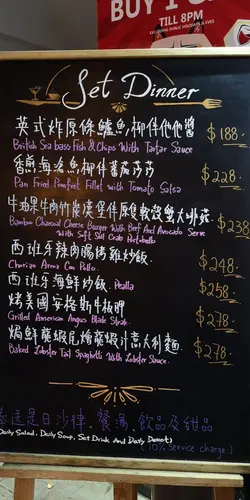 BUY 1
TILL 8PM
EXCLUDING PUBLIC HOLIDAYS & EVES
Set Dinner
英式炸原條鱸魚柳伴他他醬
British Sea bass Fish & Chips With Tartar Sauce
$188.-
香煎海鯧魚柳伴蕃茄莎莎
Pan Fried Pomfret Fillet with Tomato Salsa
$228.-
牛油果牛肉竹炭漢堡伴原隻軟殼蟹
Bamboo Charcoal Cheese Burger With Beef And Avocado Serve
With Soft Shell Crab
$238
西班牙辣肉腸烤雞炒飯
Chorizo Arroz Con Pollo
$248.-
西班牙海鮮炒飯
Paella
$258.-
烤美國安格斯牛板腱
Grilled American Angus Blade Steak
$278.-
焗鮮龍蝦尾燴龍蝦汁意大利麵
Baked Lobster Tail Spaghetti With Lobster Sauce
$278.-
奉送是日沙律、餐湯、飲品及甜品
(Daily Salad, Daily Soup, Set Drink And Daily Dessert)
(10% service charge)